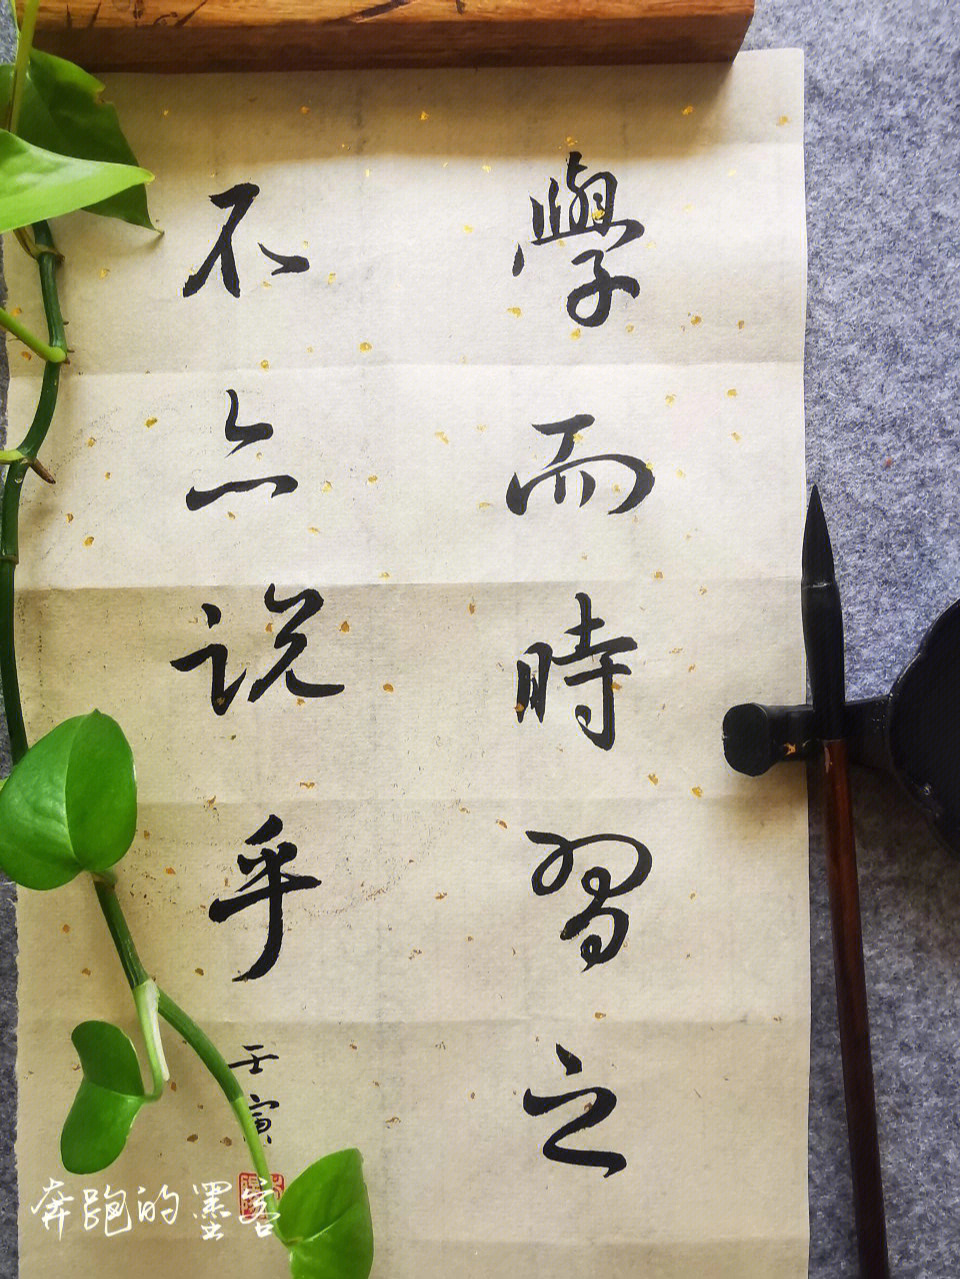 學而時習之
不亦説乎
壬寅
奔跑的墨客